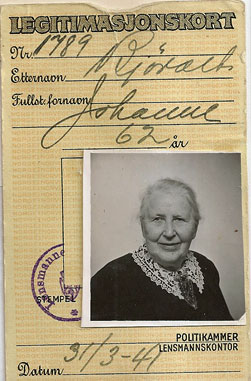 LEGITIMASJONSKORT
Nr. 1789
Etternavn
Fullst. fornavn Johanne
62 år
Lensmannen
STEMPEL
POLITIKAMMER
LENSMANNSKONTOR
Datum 31/3-41